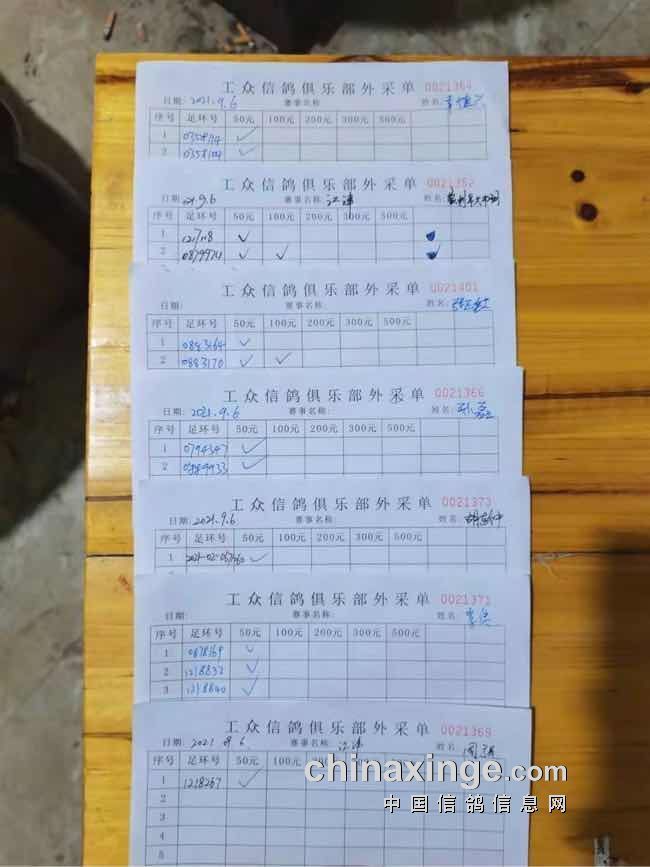 工众信鸽俱乐部外采单 0021364
日期: 2021.9.6 赛事名称 姓名:
序号 足环号 50元 100元 200元 300元 500元
1 ✓
2 ✓
工众信鸽俱乐部外采单 0021352
日期: 21.9.6 赛事名称: 江津 姓名:
序号 足环号 50元 100元 200元 300元 500元
1 ✓
2 0879974 ✓ ✓
工众信鸽俱乐部外采单 0021401
日期: 赛事名称: 姓名:
序号 足环号 50元 100元 200元 300元 500元
1 0883164 ✓
2 0883170 ✓ ✓
工众信鸽俱乐部外采单 0021366
日期: 2021.9.6 赛事名称: 姓名:
序号 足环号 50元 100元 200元 300元 500元
1 0794347 ✓
2 ✓
工众信鸽俱乐部外采单 0021373
日期: 2021.9.6 赛事名称 姓名:
序号 足环号 50元 100元 200元 300元 500元
1 ✓
工众信鸽俱乐部外采单 0021371
日期: 赛事名称: 姓名:
序号 足环号 50元 100元 200元 300元 500元
1 0878169 ✓
2 1218832 ✓
3 1218840 ✓
工众信鸽俱乐部外采单 0021369
日期: 2021.9.6 赛事名称: 江津 姓名:
序号 足环号 50元 100元
1 1218267 ✓
2
3
4
5
chinaxinge.com
中国信鸽信息网